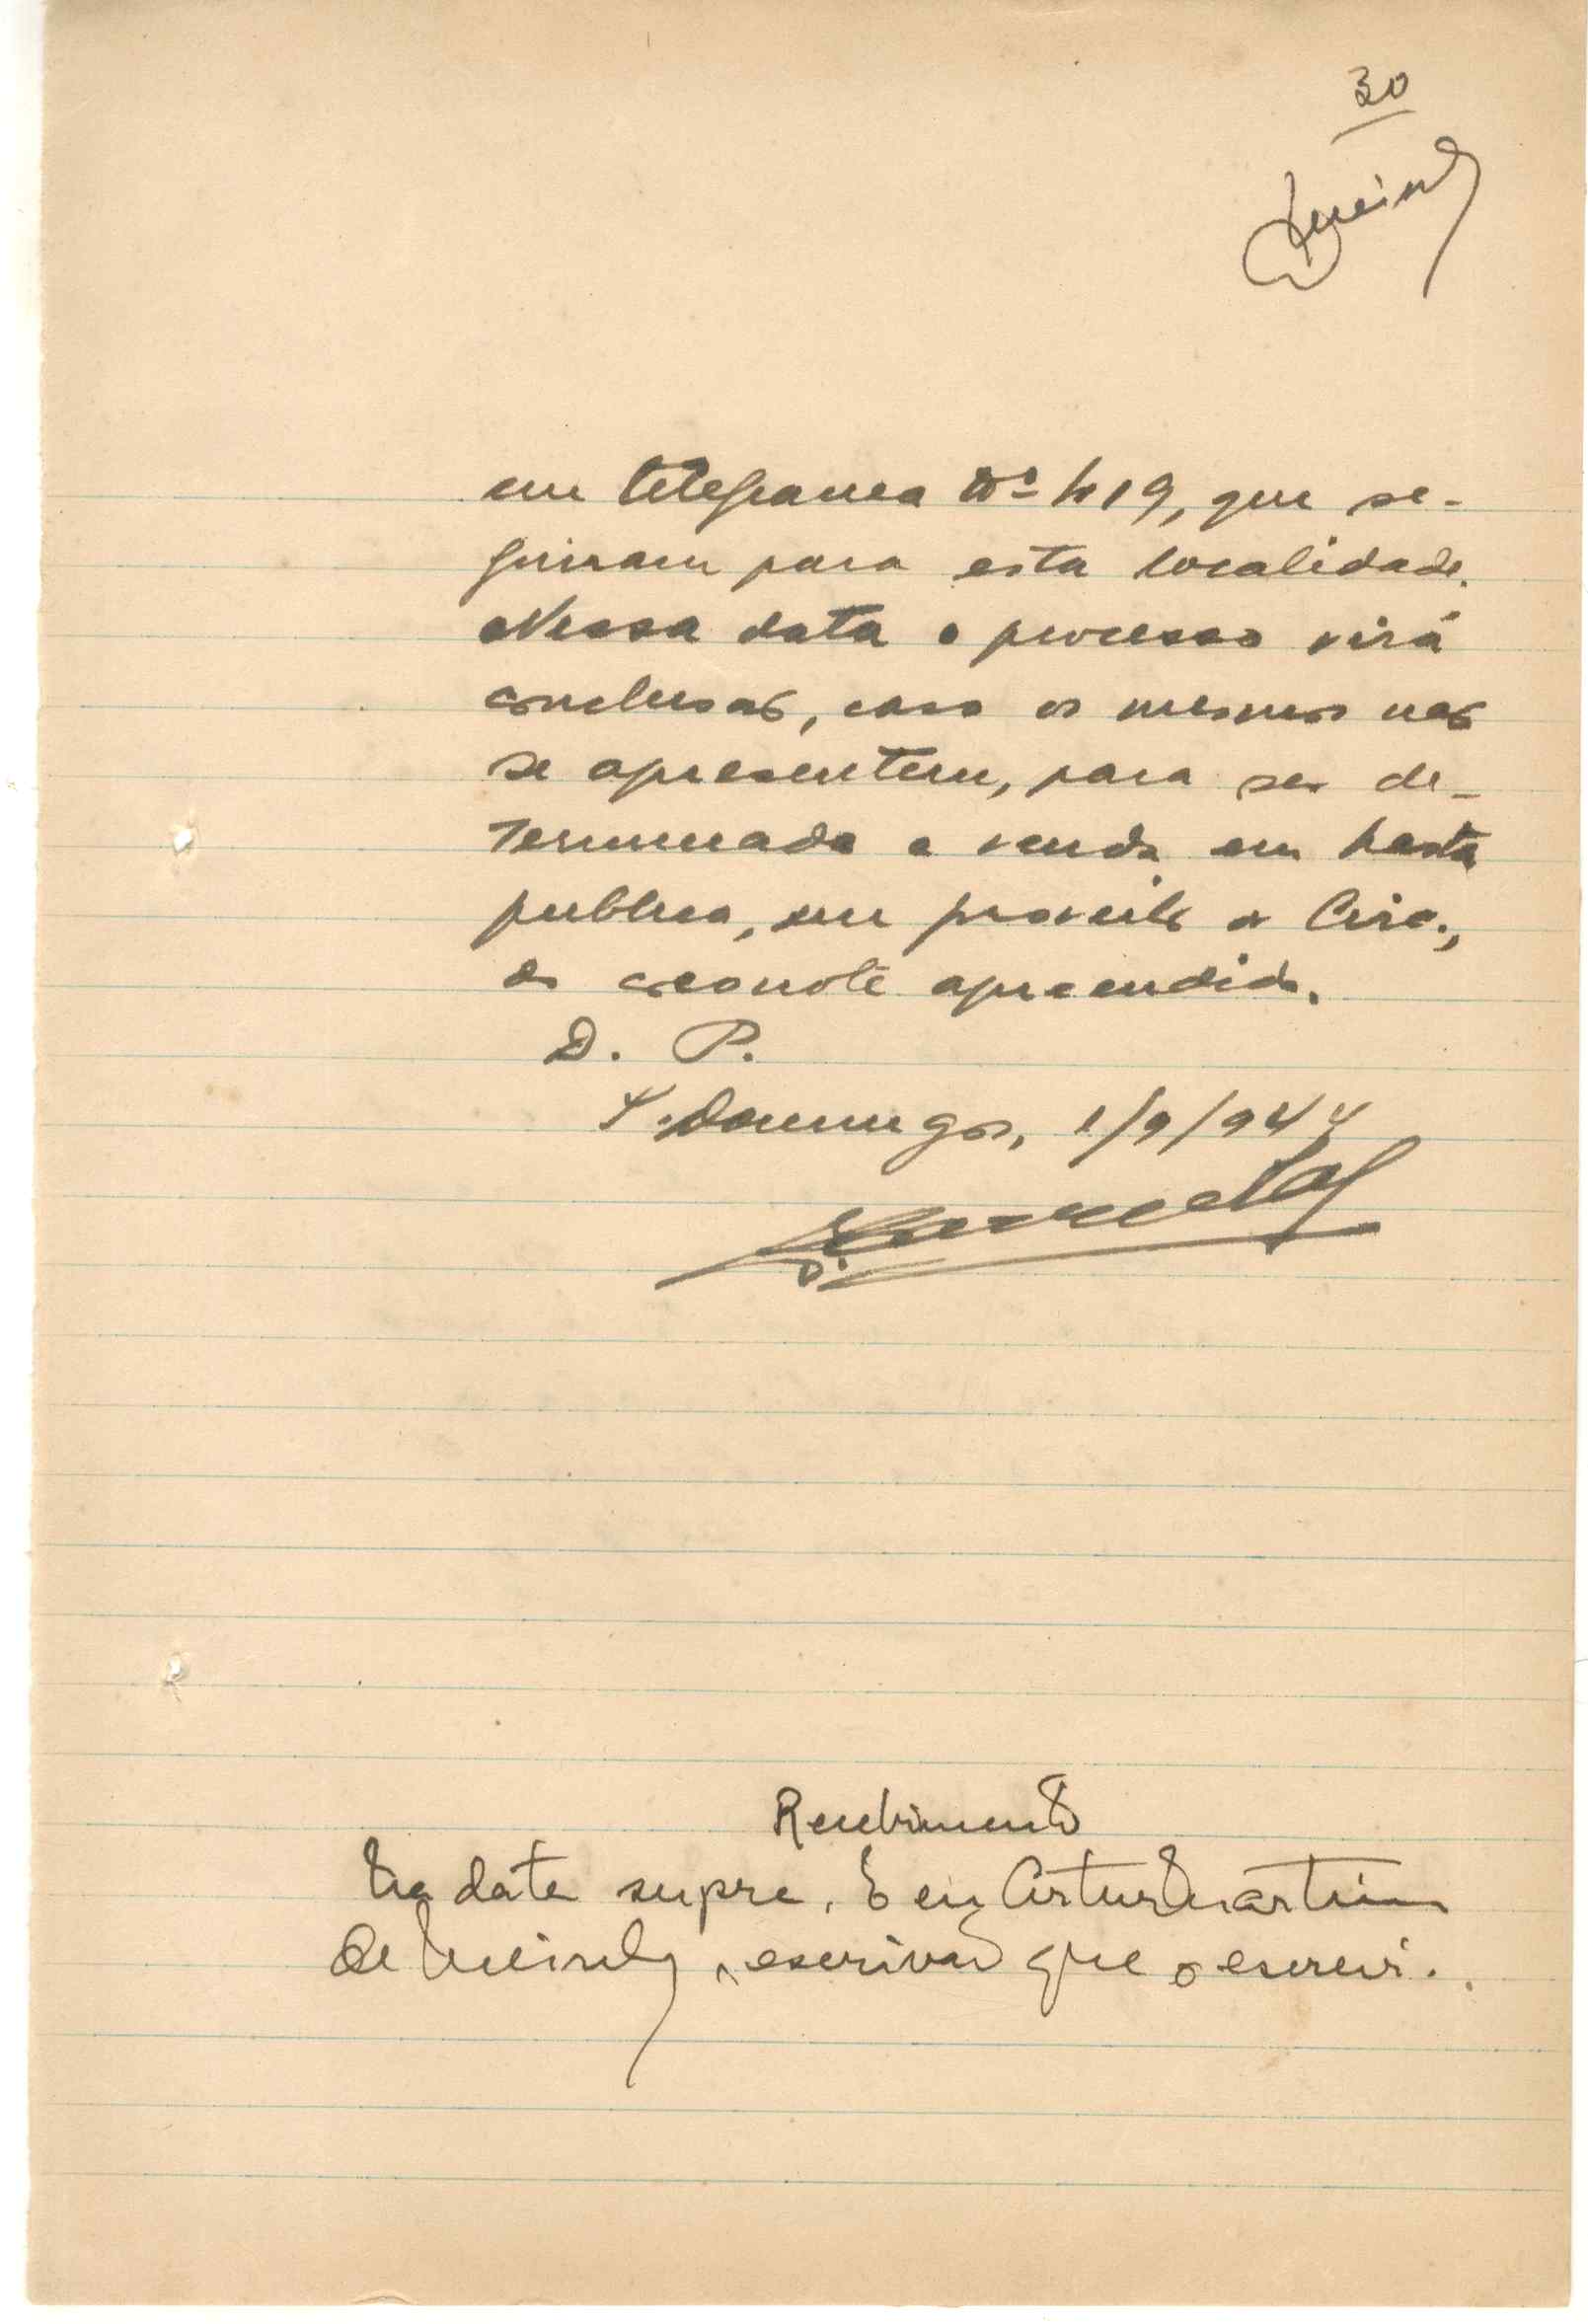 30
Queiroz
em telegrama Nº 419, que se-
guiram para esta localidade.
Nessa data o processo virá
conclusão, caso os mesmos não
se apresentem, para ser de-
terminada a venda em hasta
publica, em proveito a
do caminhão apreendido.
D. P.
S. Domingos, 1/9/944
Recebimento
Na data supra. E eu Artur Martins
de Queiroz, escrivão que o escrevi.